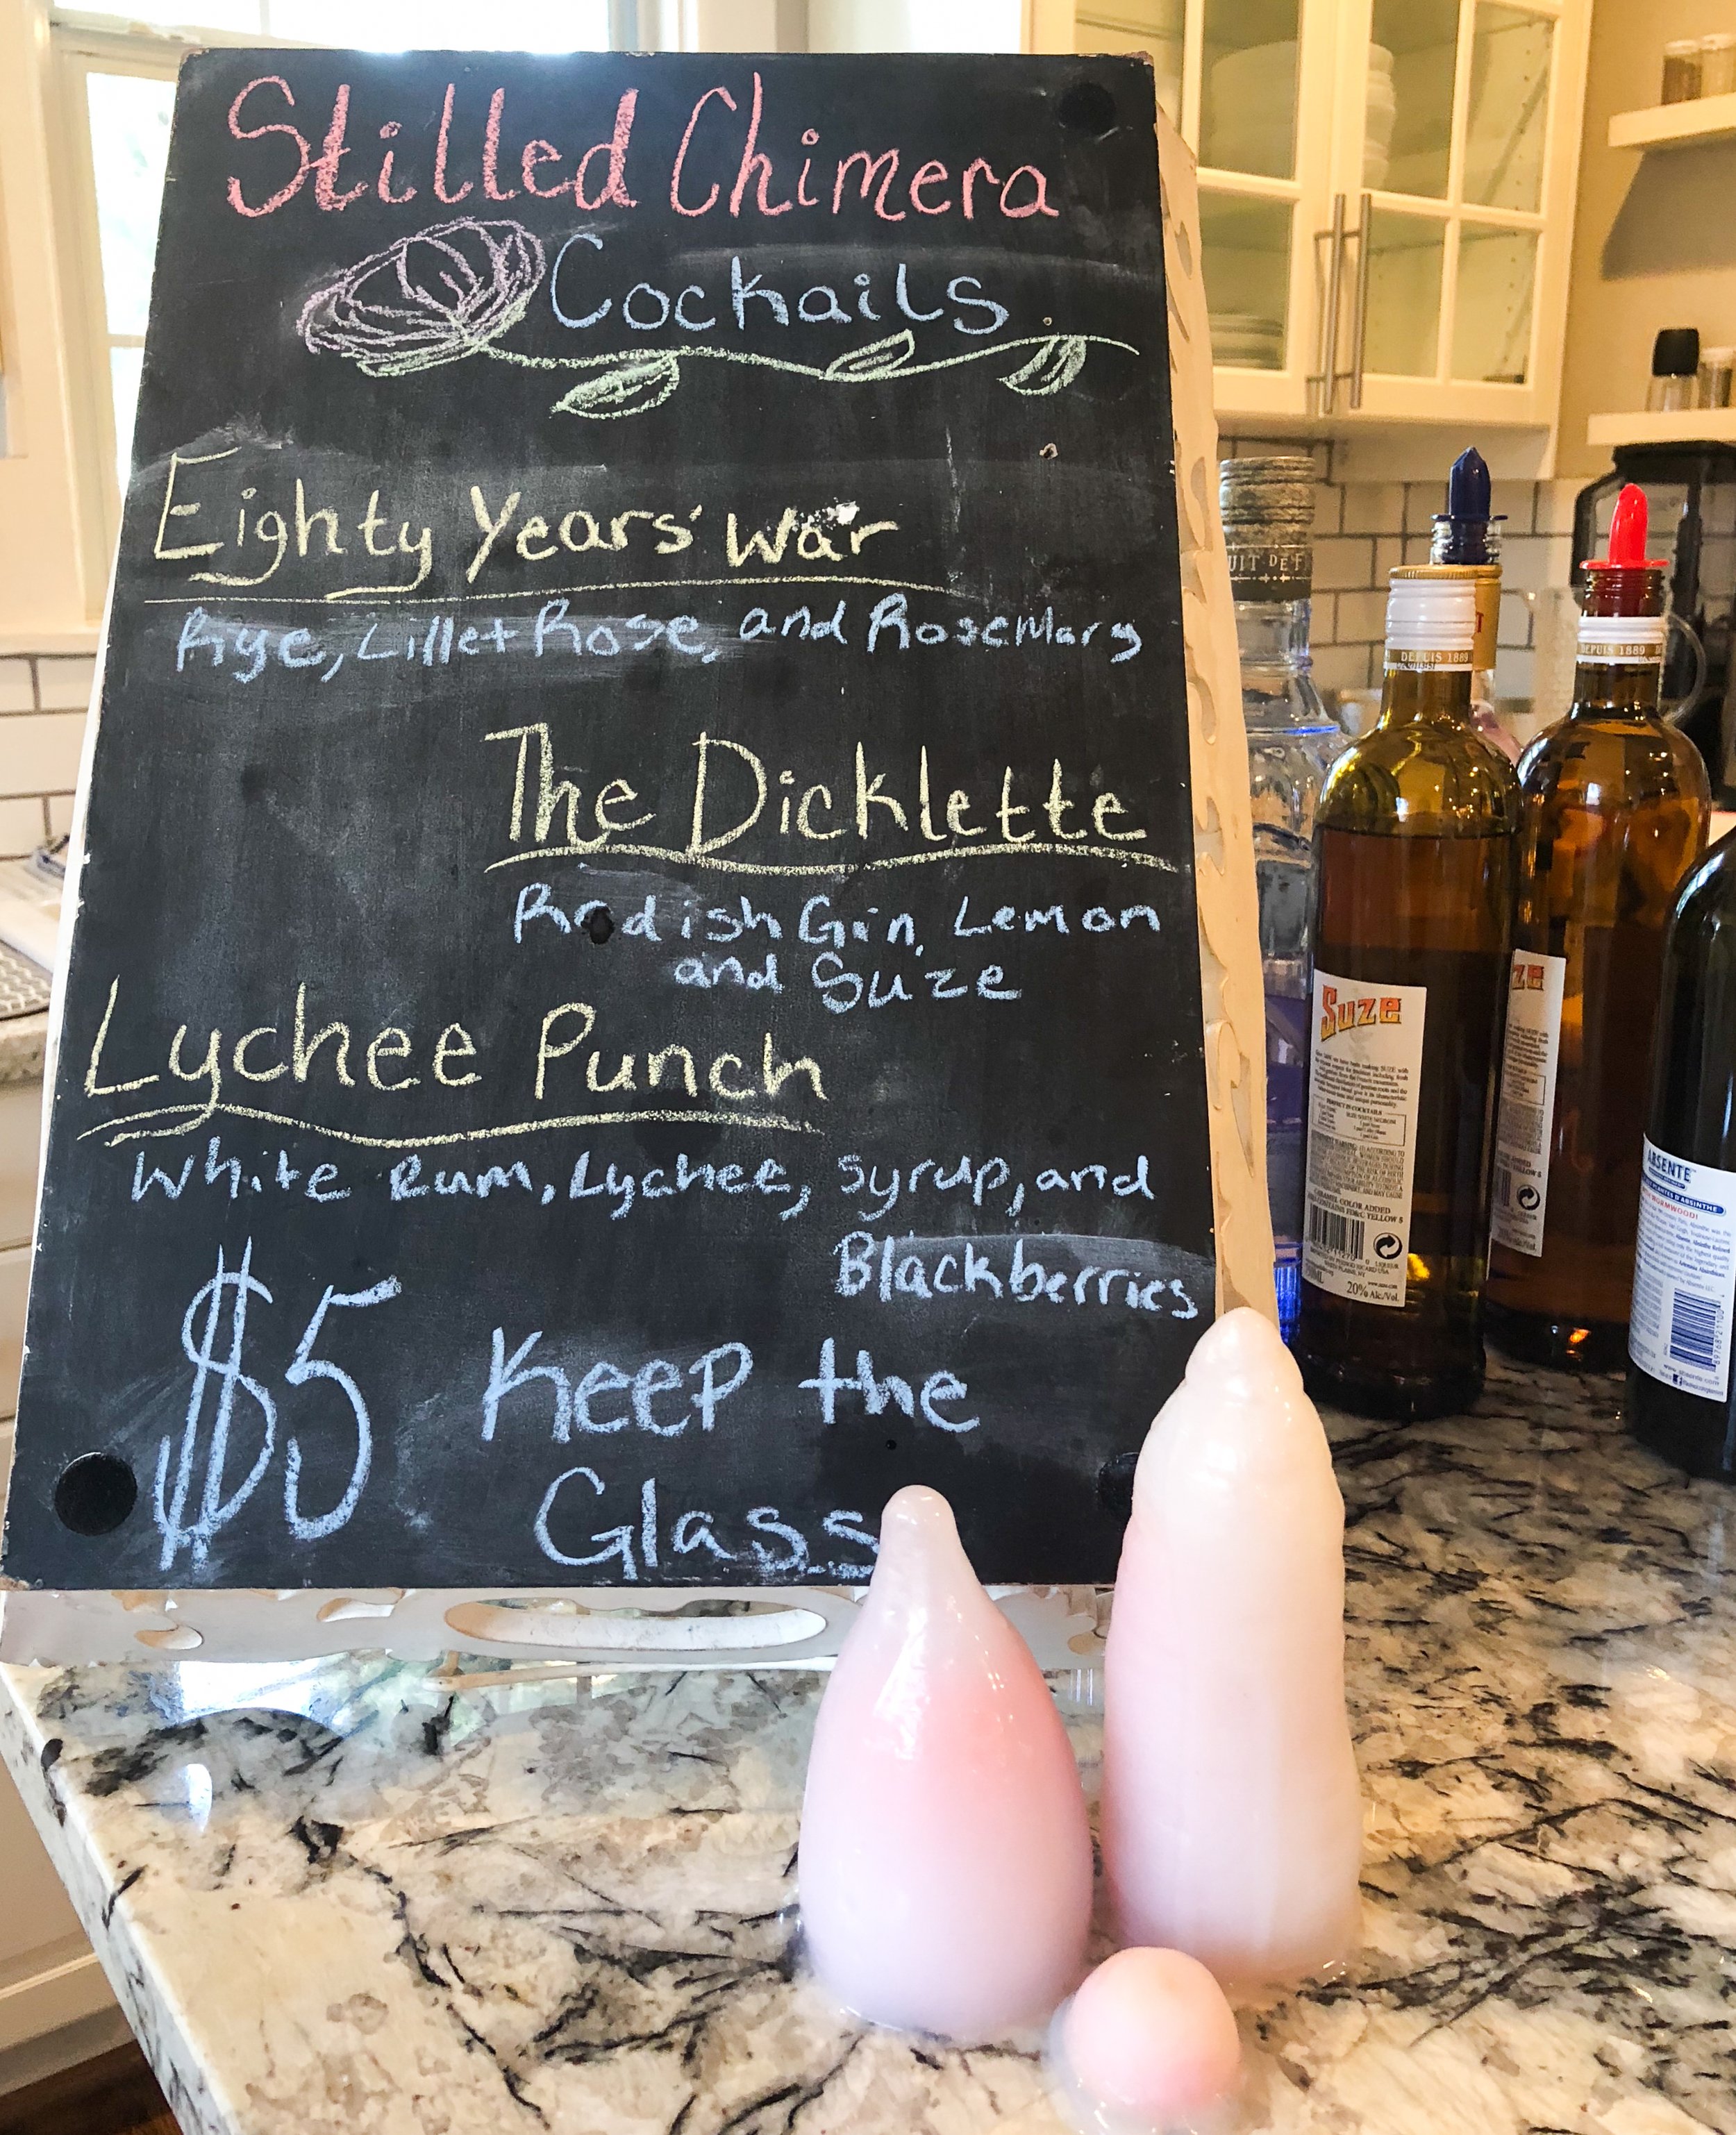 Stilled Chimera
Cockails
Eighty Years' War
Rye, Lillet Rose, and Rosemary
The Dicklette
Radish Gin, Lemon
and Suze
Lychee Punch
White Rum, Lychee, Syrup, and
Blackberries
$5 Keep the
Glass
DEPUIS 1889
DEPUIS 1889
Suze
PERFECT IN COCKTAILS
20% Alc/Vol.
ZE
ABSENTE